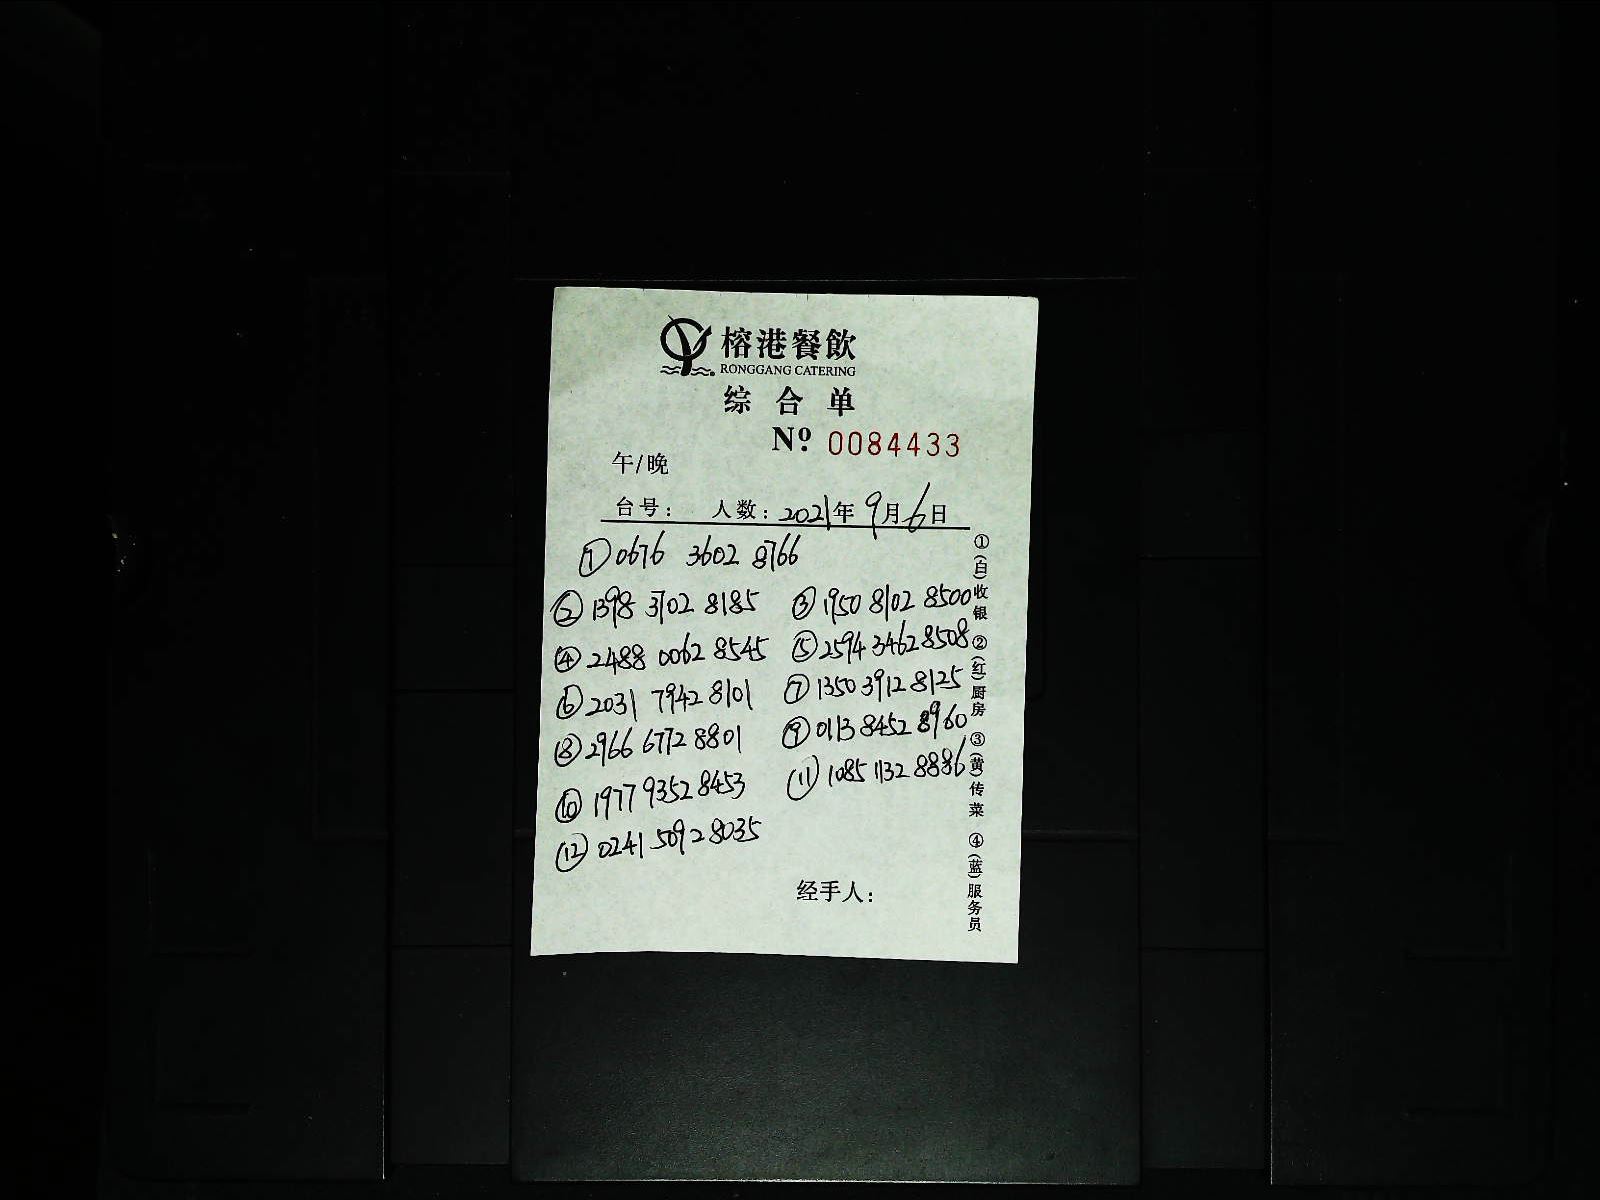 榕港餐飲
RONGGANG CATERING
综合单
Nº 0084433
午/晚
台号： 人数：2021年9月6日
①0676 3602 8766
②1398 3702 8185 ③1950 8102 8500
④2488 0062 8545 ⑤2594 3462 8508
⑥2031 7942 8101 ⑦1350 3912 8125
⑧2966 6772 8801 ⑨0113 8452 8960
⑩1977 9352 8453 ⑪1085 1132 8886
⑫0241 5092 8035
经手人：
①(白)收银 ②(红)厨房 ③(黄)传菜 ④(蓝)服务员